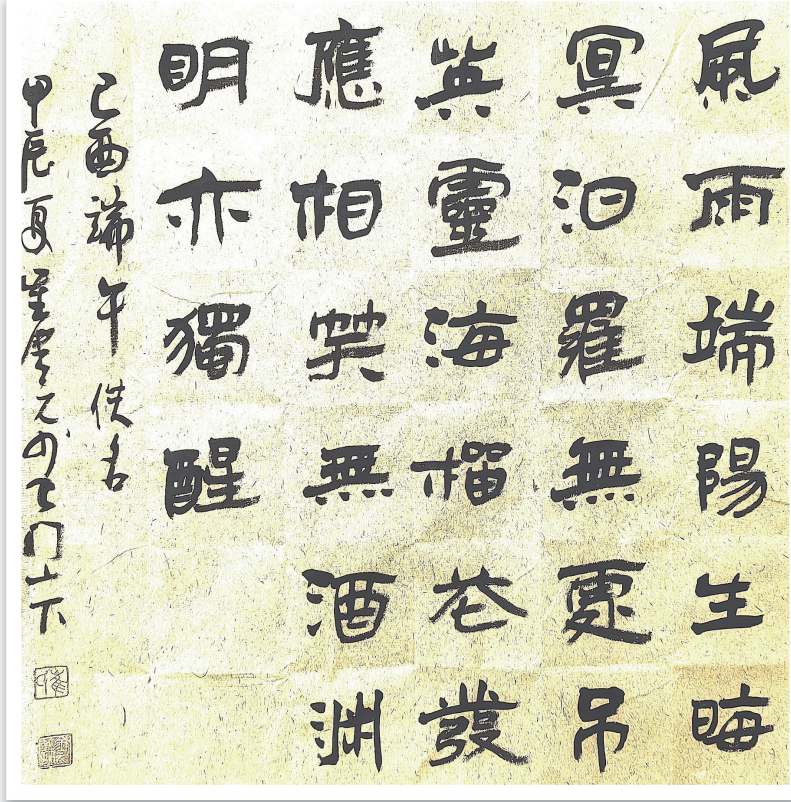 風雨端陽生晦
冥汨羅無處吊
英靈海榴花發
應相笑無酒淵
明亦獨醒
己酉端午 佚名
甲辰夏